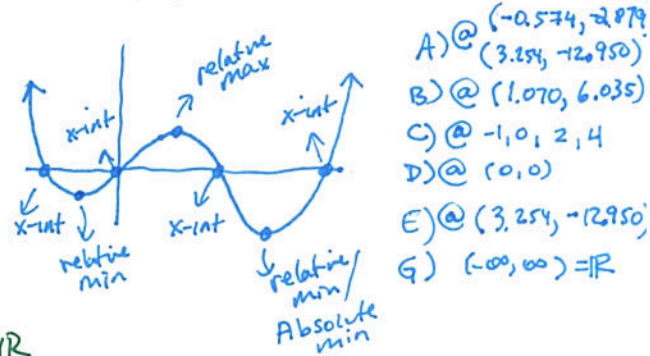 relative
max
x-int
x-int
x-int
relative
min
x-int
relative/
min
Absolute
min
A) @ (-0.574, -2.879
(3.254, -12.950)
B) @ (1.070, 6.035)
C) @ -1, 0, 2, 4
D) @ (0,0)
E) @ (3.254, -12.950)
G) (-∞, ∞) = ℝ
ℝ